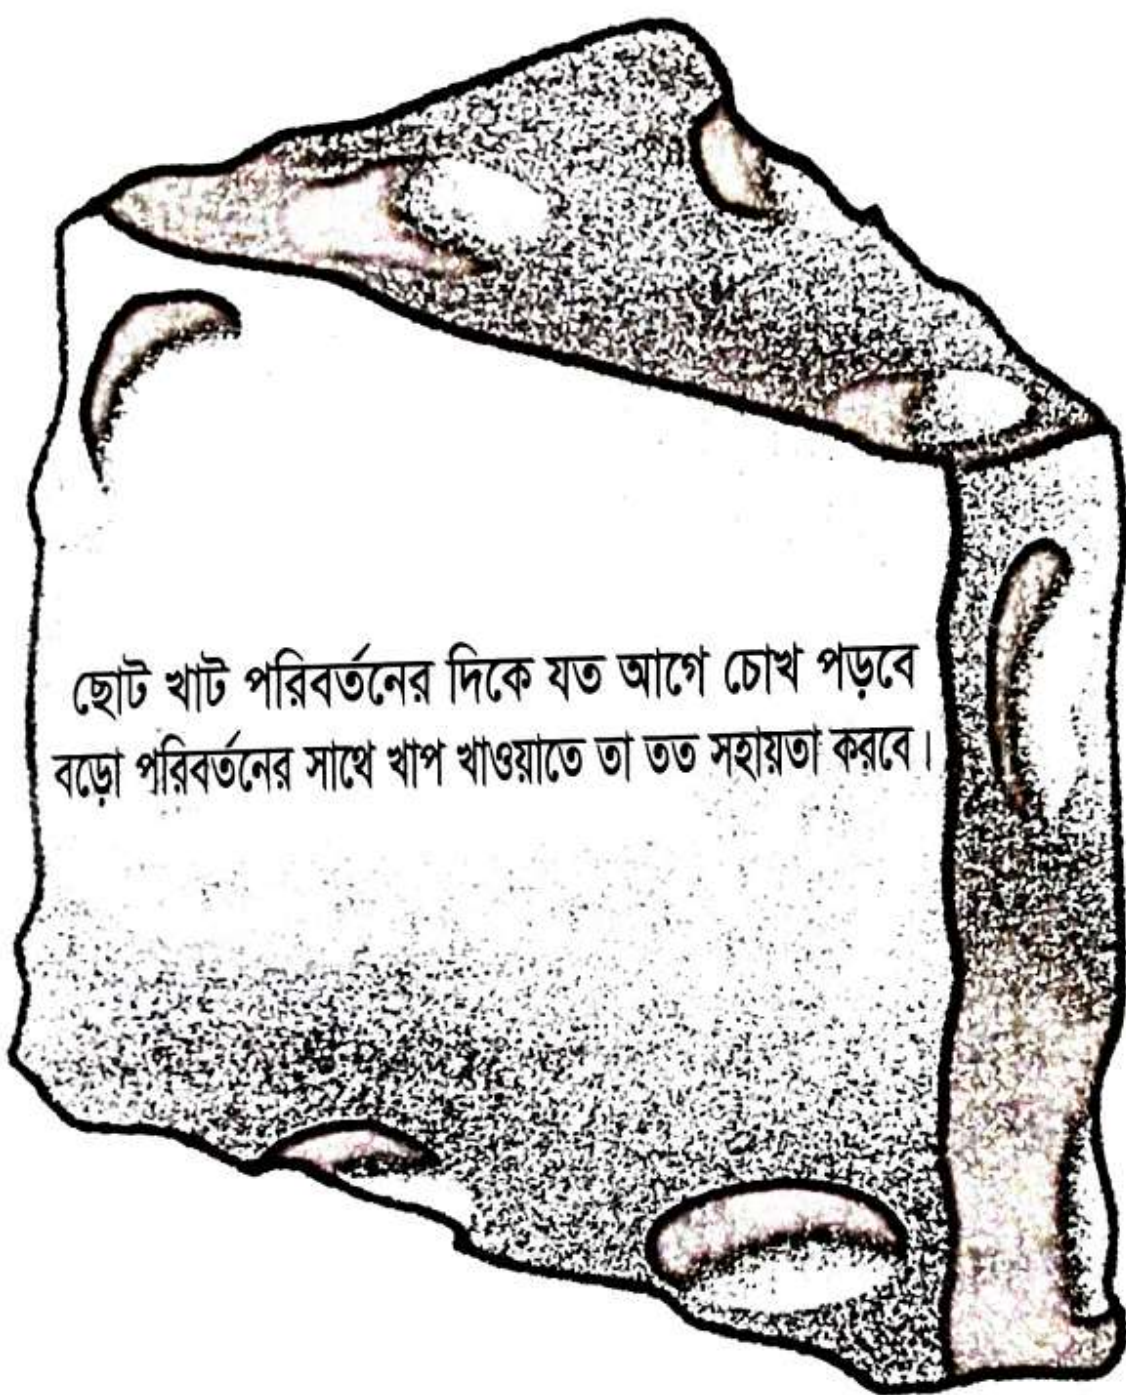 ছোট খাট পরিবর্তনের দিকে যত আগে চোখ পড়বে
বড়ো পরিবর্তনের সাথে খাপ খাওয়াতে তা তত সহায়তা করবে।